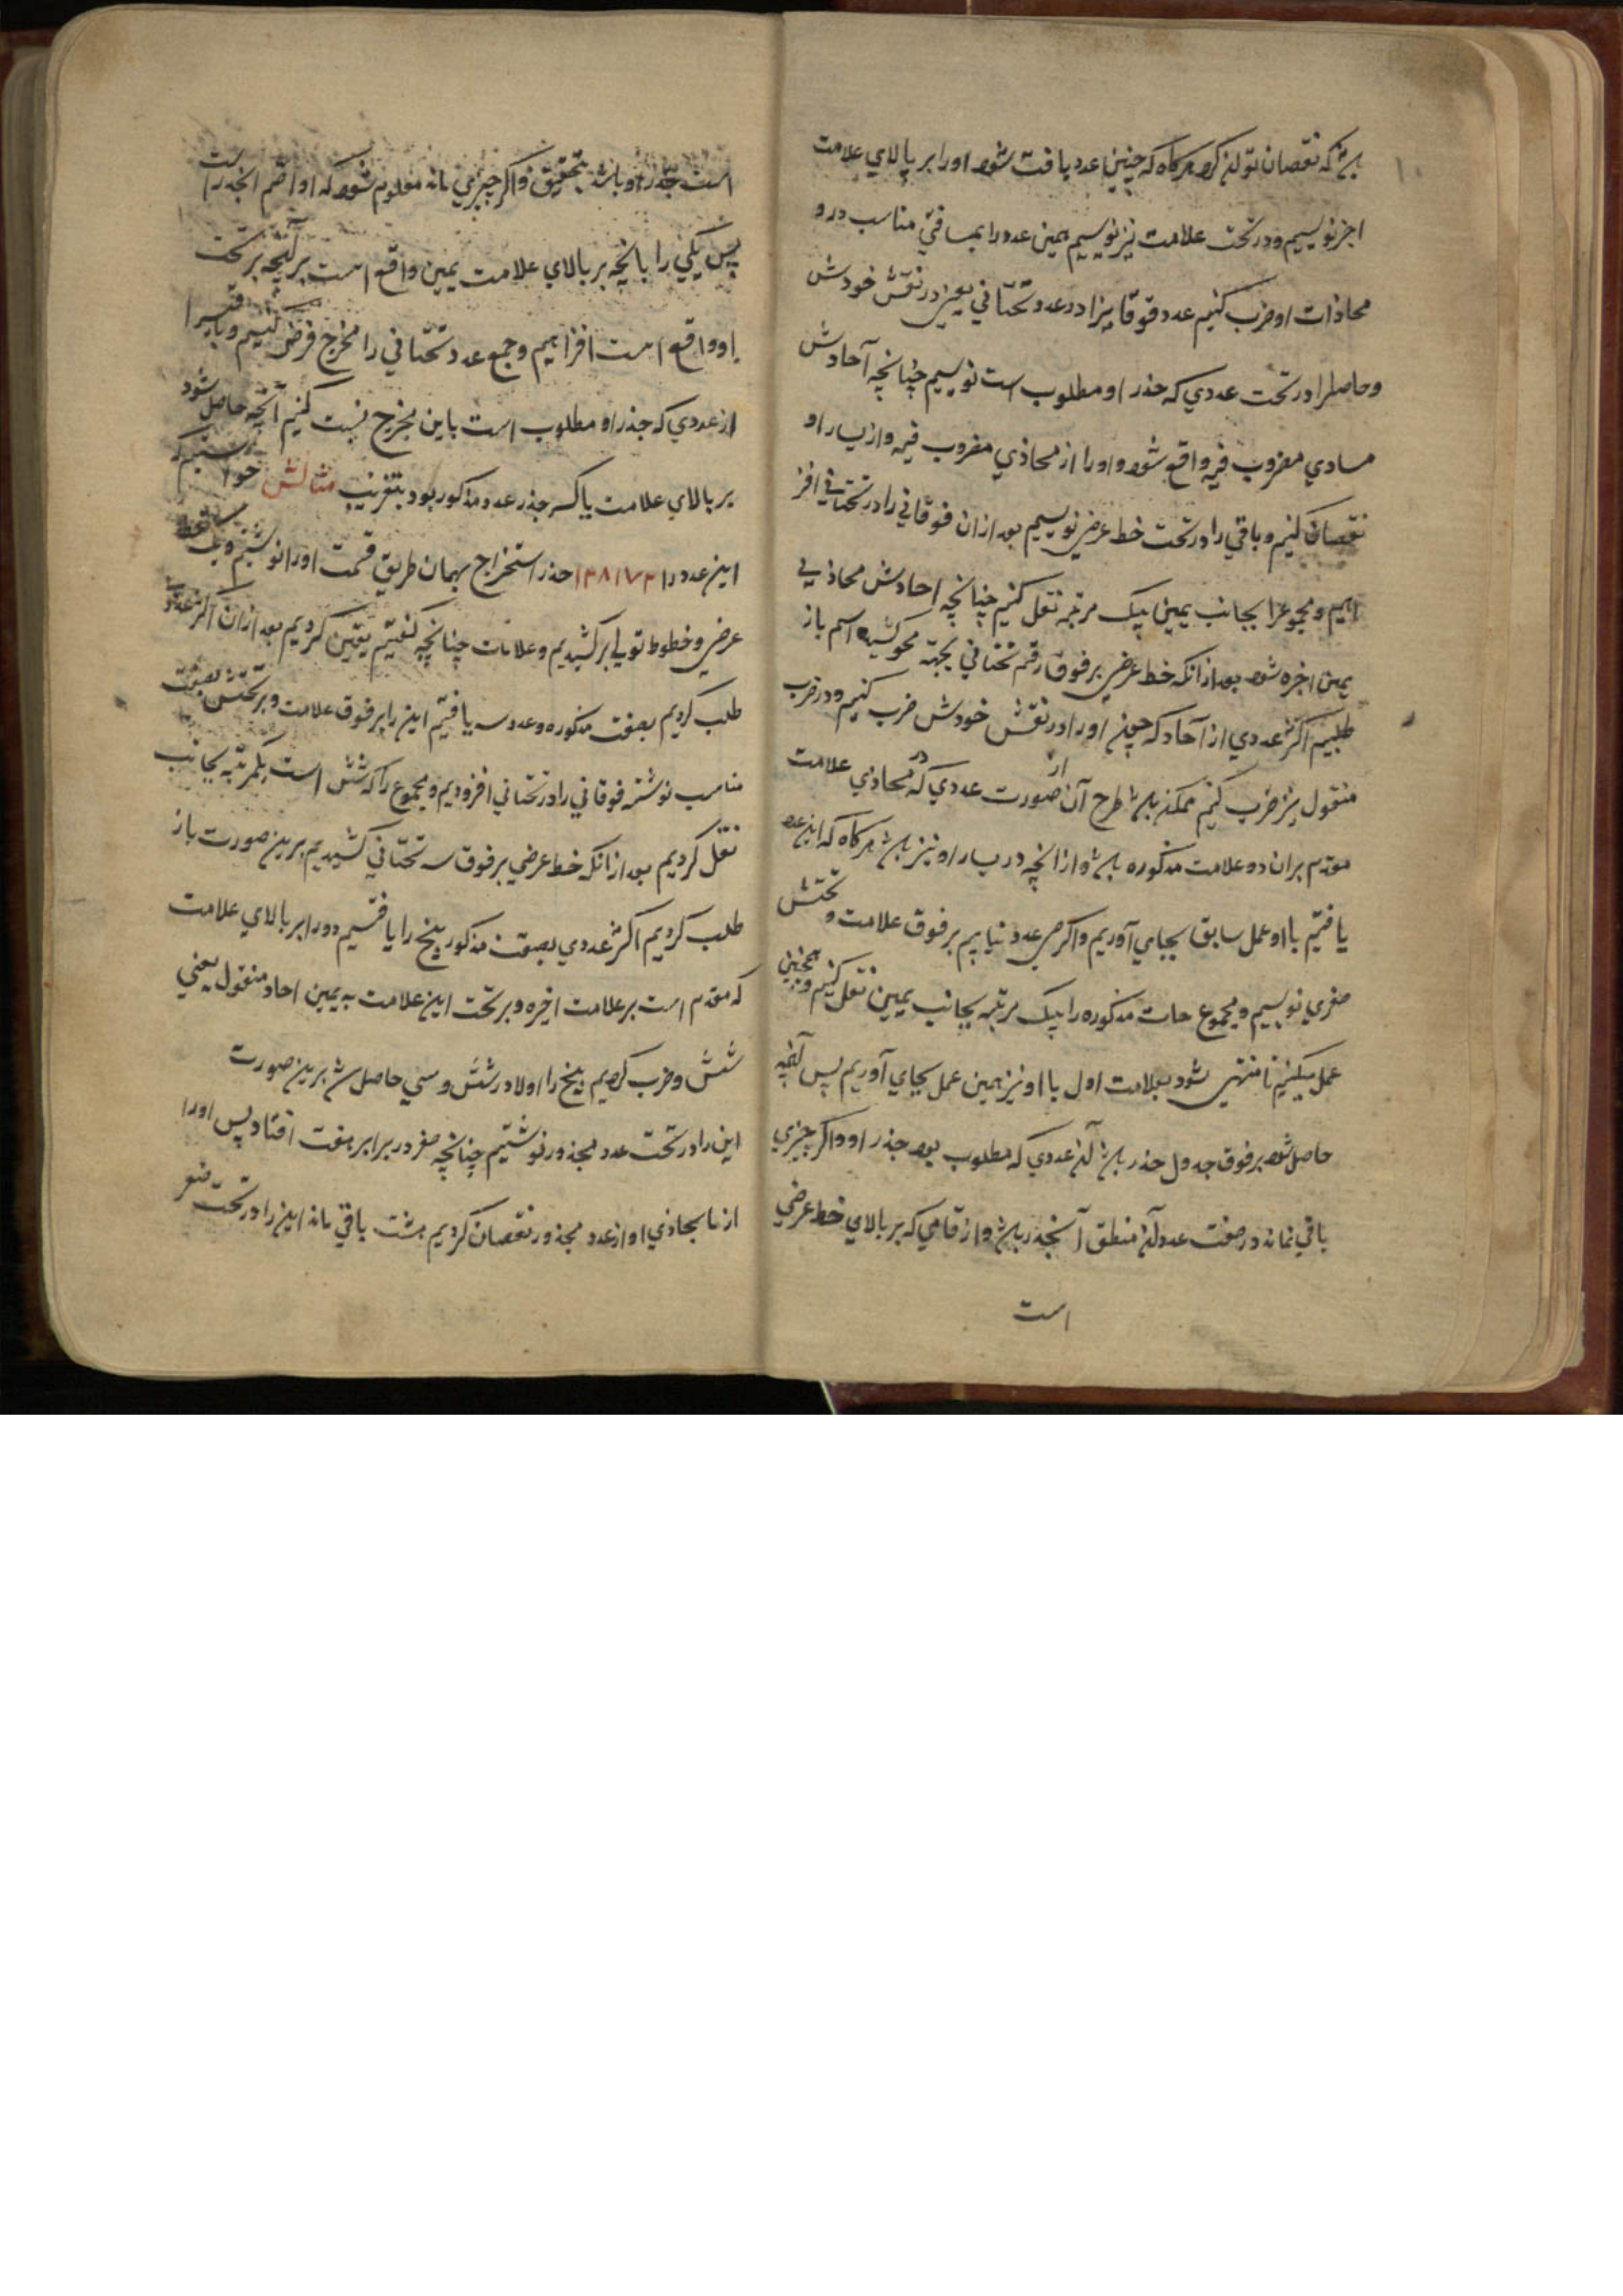 باشد که نقصان توان کرد هرگاه که چنین عدد یافت شود او را بر بالای علامت
اخر نویسیم و در تحت علامت نیز نویسیم همین عدد را بمسافتی مناسب در و
محاذات او ضرب کنیم عدد فوقانی را در عدد تحتانی یعنی در نفس خودش
و حاصل را در تحت عددی که جذر او مطلوب است نویسیم چنانچه آحادش
مساوی مضروب فیه واقع شود و او را از محاذی مضروب فیه و از یسار او
نقصان کنیم و باقی را در تحت خط عرضی نویسیم بعد از ان فوقانی را در تحتانی افز
ائیم و مجموع را بجانب یمین بیک مرتبه نقل کنیم چنانچه احادش محاذی
یمین اخره شود بعد از انکه خط عرضی بر فوق رقم تحتانی بجهة محو کشیده اسم باز
طلبیم اکثر عددی از آحاد که چون او را در نفس خودش ضرب کنیم و در ضرب
منقول نیز ضرب کنیم ممکن باشد طرح آن از صورت عددی که در محاذی علامت
مقدم بر ان دو علامت مذکوره باشد و از انچه در یسار او نیز باشد هرگاه که این عدد
یافتیم با او عمل سابق بجای آوریم و اگر عدد نیابیم بر فوق علامت و تحتش
صفری نویسیم و مجموع مذکوره را بیک مرتبه بجانب یمین نقل کنیم و همچنین
عمل میکنیم تا منتهی شود بعلامت اول با او نیز همین عمل بجای آوریم پس آنچه
حاصل شود بر فوق جدول جذر باشد آن عددی که مطلوب بود جذر او و اگر چیزی
باقی نماند در صفت عدد آن منطق آنجذر باشد و ارقامی که بر بالای خط عرضی
است
است جذر او باشد بتحقیق و اگر چیزی ماند معلوم شود که او اصم الجذر است
پس یکی را بانچه بر بالای علامت یمین واقع است بر آنچه بر تحت
او واقع است افزاییم و جمع عدد تحتانی را مخرج فرض کنیم و باقی را
از عددی که جذر او مطلوب است باین مخرج نسبت کنیم آنچه حاصل شود
بر بالای علامت یا کسر جذر عدد مذکور بود بتقریب مثالش خواستیم که
این عدد را ۱۳۸۱۷۳ جذر استخراج بهمان طریق قسمت او را نوشتیم و خط
عرضی و خطوط طولی بر کشیدیم و علامات چنانچه گفتیم یقین کردیم بعد از ان اکثر عددی
طلب کردیم بصفت مذکوره و عدد سه یافتیم این را بر فوق علامت و بر تحتش بصفت
مناسب نوشته فوقانی را در تحتانی افزودیم و مجموع را که شش است بیکمرتبه بجانب
نقل کردیم بعد از انکه خط عرضی بر فوق سه تحتانی کشیدیم برین صورت باز
طلب کردیم اکثر عددی بصفت مذکور پنج را یافتیم و را بر بالای علامت
که مقدم است بر علامت اخیره و بر تحت این علامت به یمین احاد منقول یعنی
شش و ضرب کردیم پنج را اولا در شش و سی حاصل شد برین صورت
این را در تحت عدد مجذور نوشتیم چنانچه صفر در برابر هفت افتاد پس او را
از ما بحاذی او از عدد مجذور نقصان کردیم هشت باقی ماند این را در تحت صفر